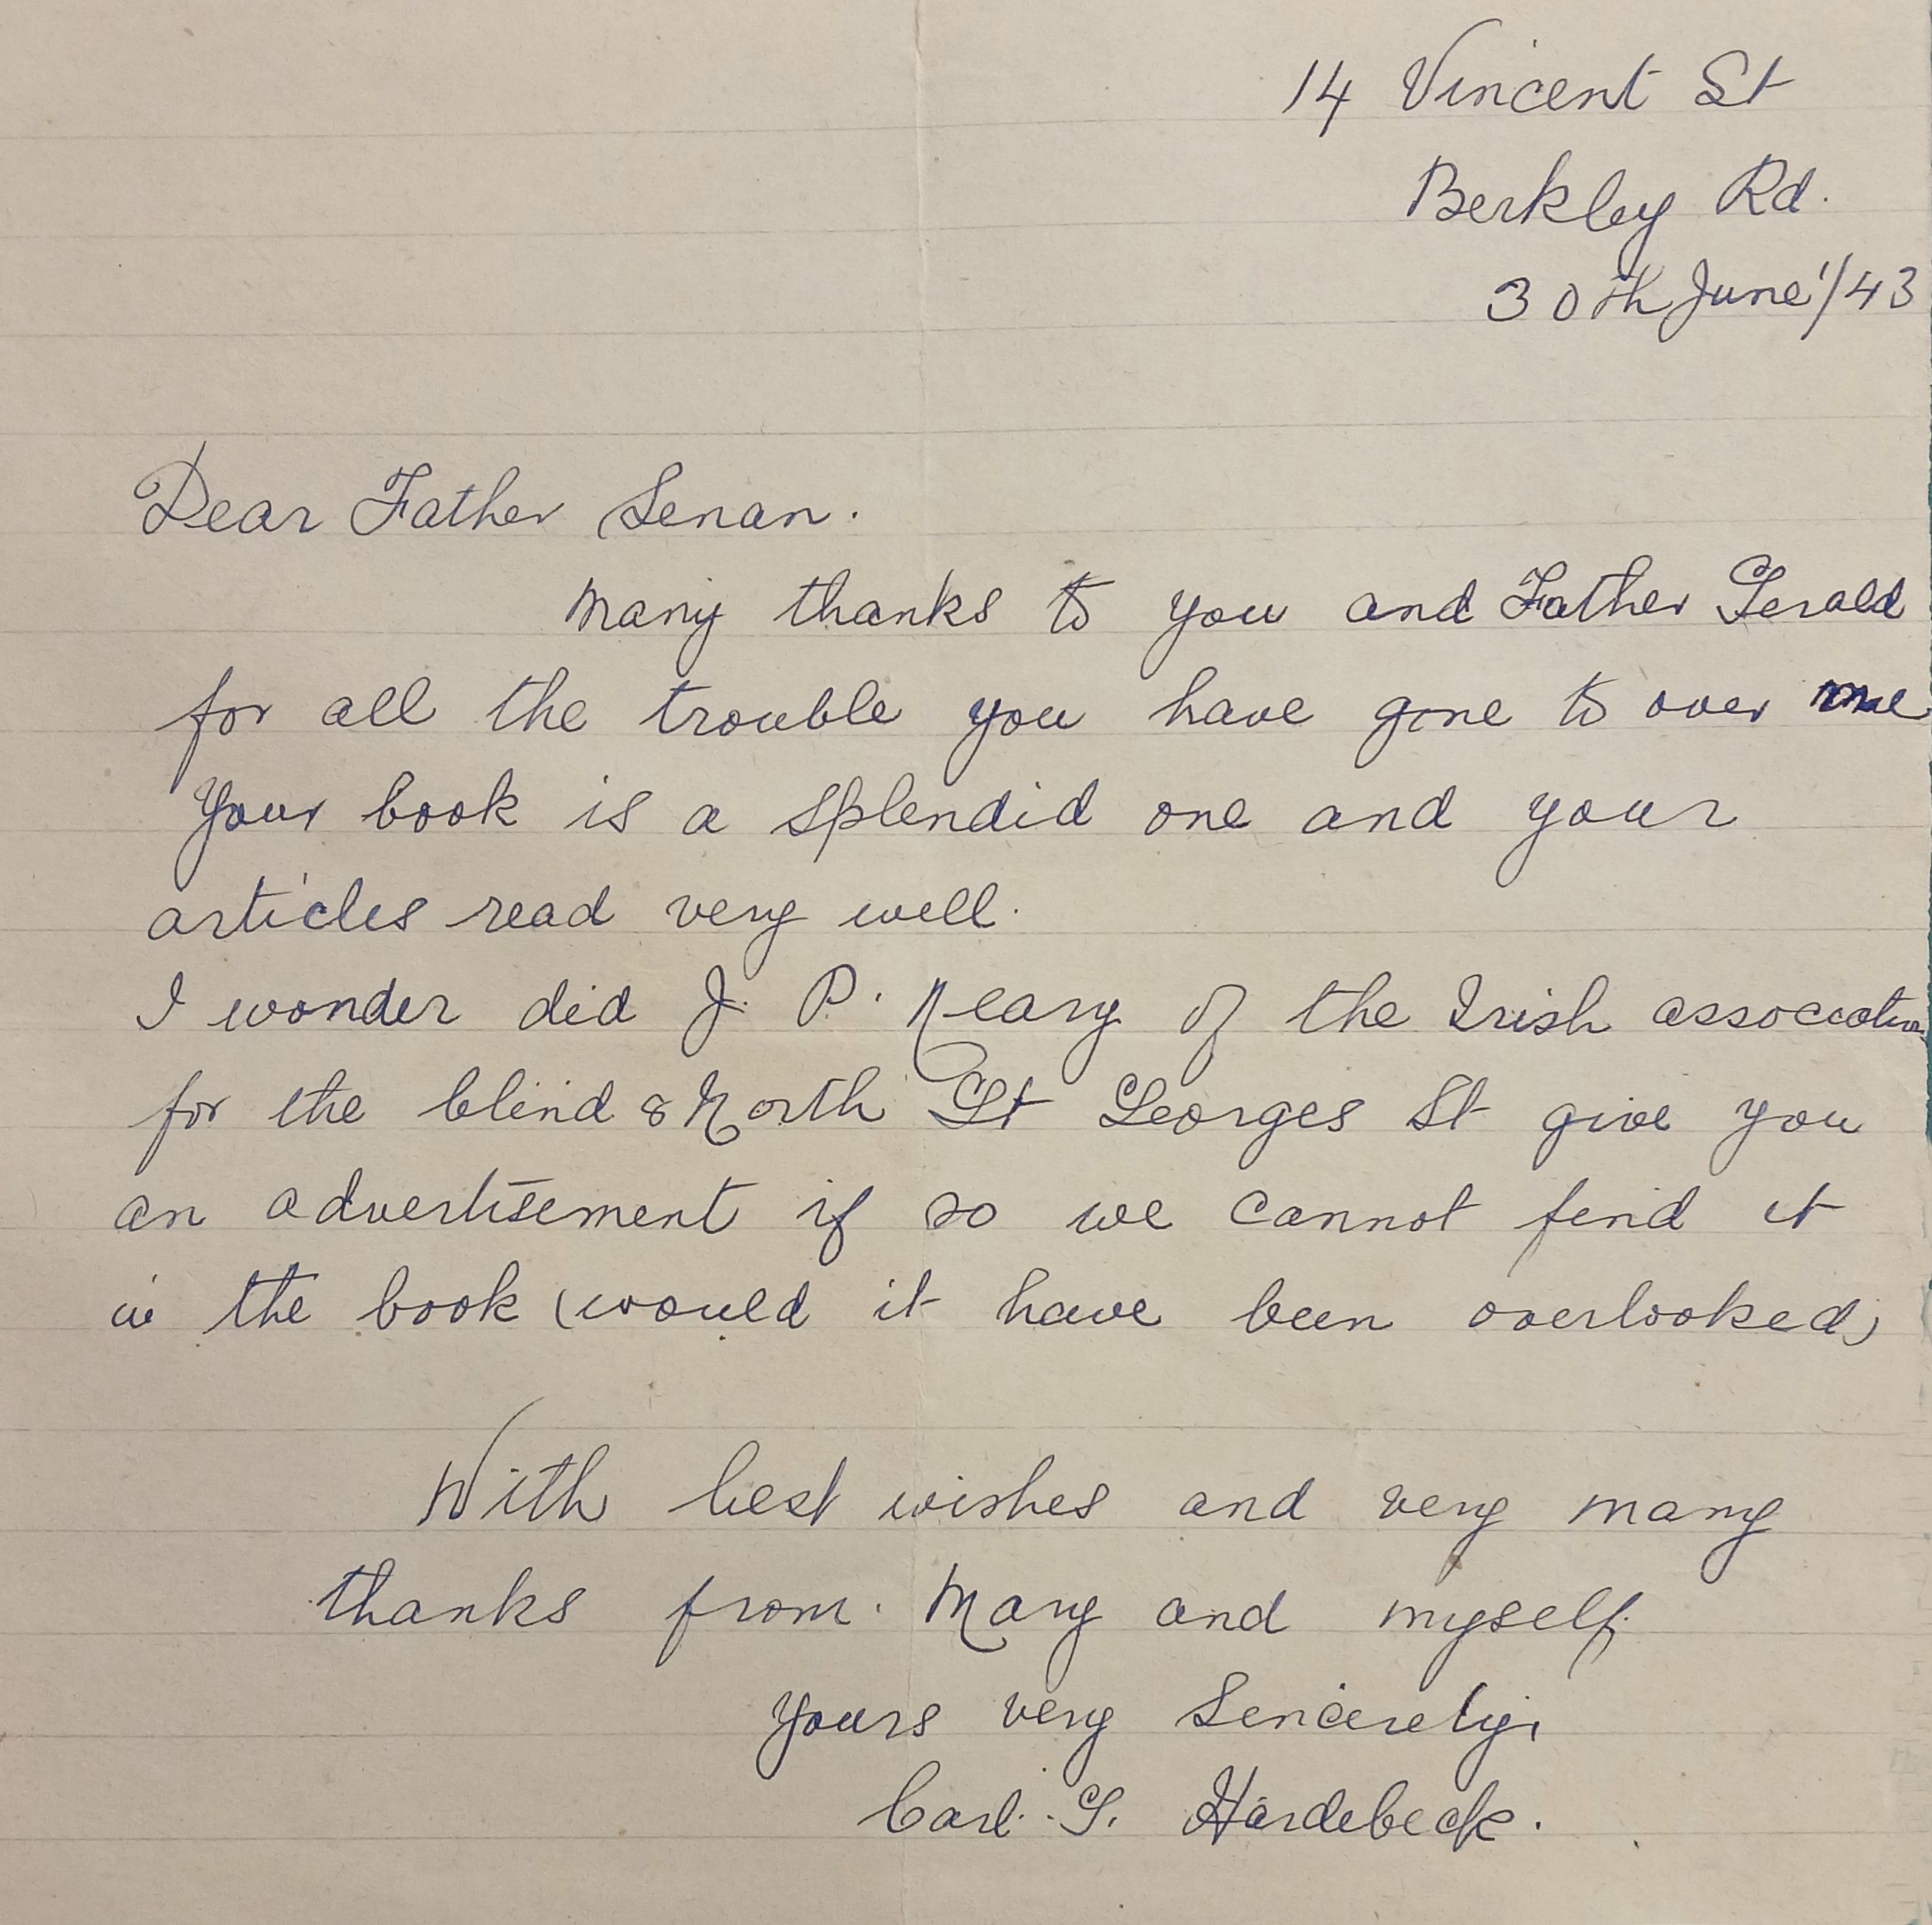 14 Vincent St
Berkley Rd.
30th June'/43
Dear Father Senan.
Many thanks to you and Father Gerald
for all the trouble you have gone to over me
Your book is a splendid one and your
articles read very well.
I wonder did J. P. Neary of the Irish association
for the blind 8 North Gt Georges St give you
an advertisement if so we cannot find it
in the book (would it have been overlooked)
With best wishes and very many
thanks from. Mary and myself.
Yours very Sincerely,
Carl. G. Hardebeck.